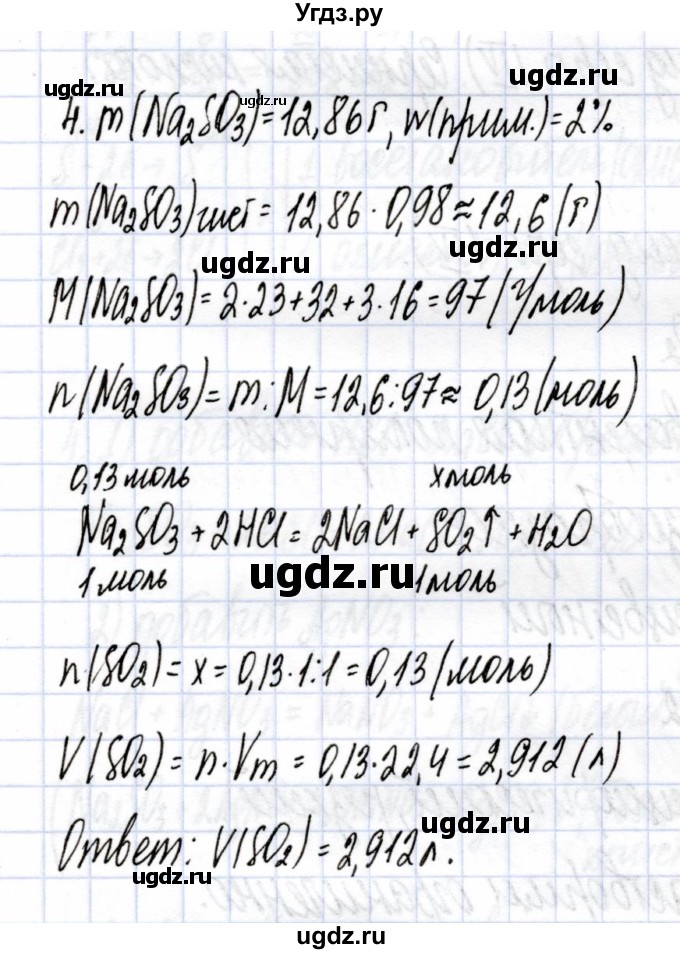 Угдз.ру
ugdz.ru
ugdz.ru
ugdz.ru
4. m(Na₂SO₃)=12,86г, w(прим.)=2%
m(Na₂SO₃)чист=12,86·0,98≈12,6(г)
ugdz.ru
ugdz.ru
M(Na₂SO₃)=2·23+32+3·16=97(г/моль)
ugdz.ru
n(Na₂SO₃)=m:M=12,6:97≈0,13(моль)
0,13 моль x моль
Na₂SO₃+2HCl=2NaCl+SO₂↑+H₂O
ugdz.ru
1 моль 1 моль
n(SO₂)=x=0,13·1:1=0,13(моль)
ugdz.ru
V(SO₂)=n·Vm=0,13·22,4=2,912(л)
ugdz.ru
Ответ: V(SO₂)=2,912л.
ugdz.ru
ugdz.ru